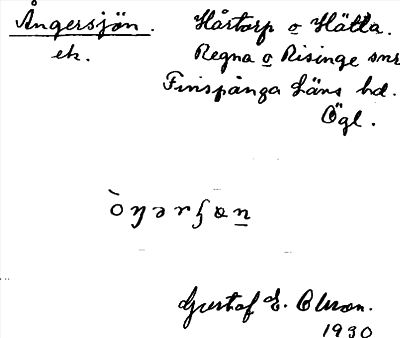 Ångersjön. Hårtorp o Hätla.
ek. Regna o Risinge snr
Finspånga Läns hd.
Ögl.
Gustaf E. Olsson.
1930